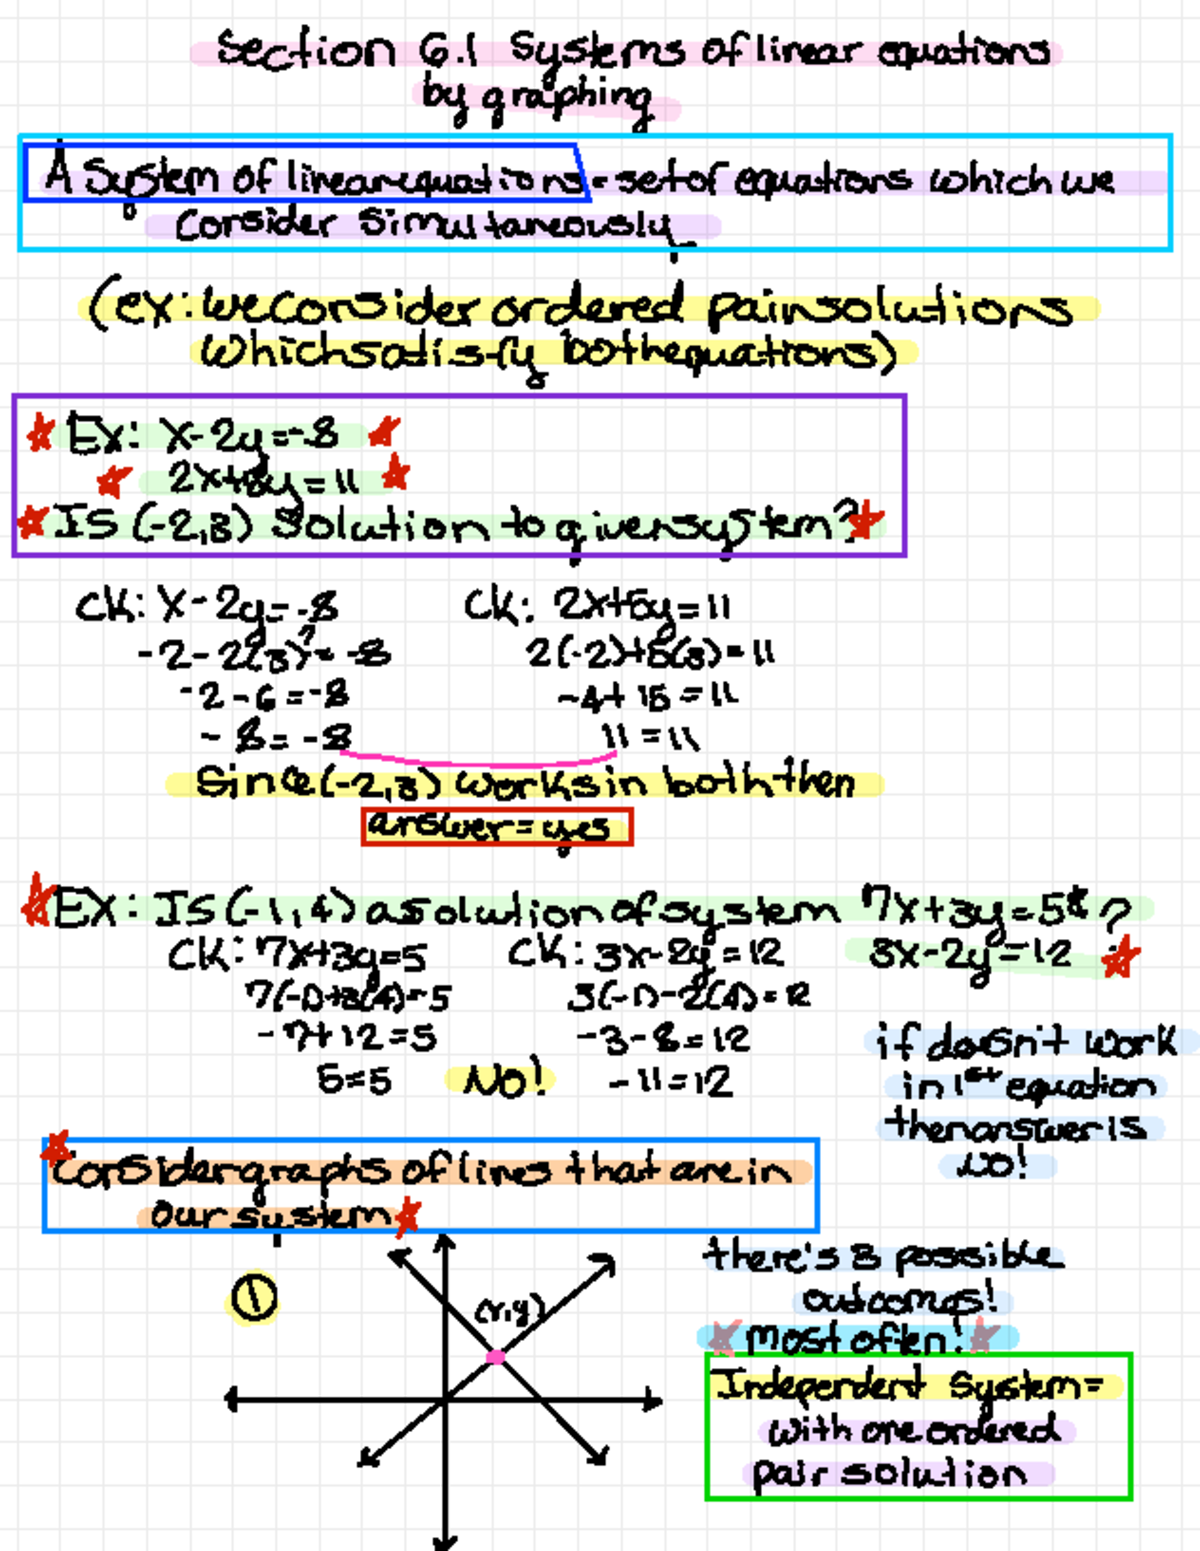 Section 6.1 Systems of linear equations
by graphing
A System of linear equations = set of equations which we
consider simultaneously
(ex: we consider ordered pair solutions
which satisfy both equations)
Ex: x-2y=-8
2x+5y=11
Is (-2,3) solution to given system?
CK: x-2y=-8
-2-2(3)?=-8
-2-6=-8
-8=-8
CK: 2x+5y=11
2(-2)+5(3)=11
-4+15=11
11=11
Since (-2,3) works in both then
answer=yes
EX: Is (-1,4) a solution of system 7x+3y=5 & ?
3x-2y=12
CK: 7x+3y=5
7(-1)+3(4)=5
-7+12=5
5=5
CK: 3x-2y=12
3(-1)-2(4)=12
-3-8=12
-11=12
No!
if doesn't work
in 1st equation
then answer is
NO!
Consider graphs of lines that are in
our system
1
(x,y)
there's 3 possible
outcomes!
most often!
Independent System=
with one ordered
pair solution